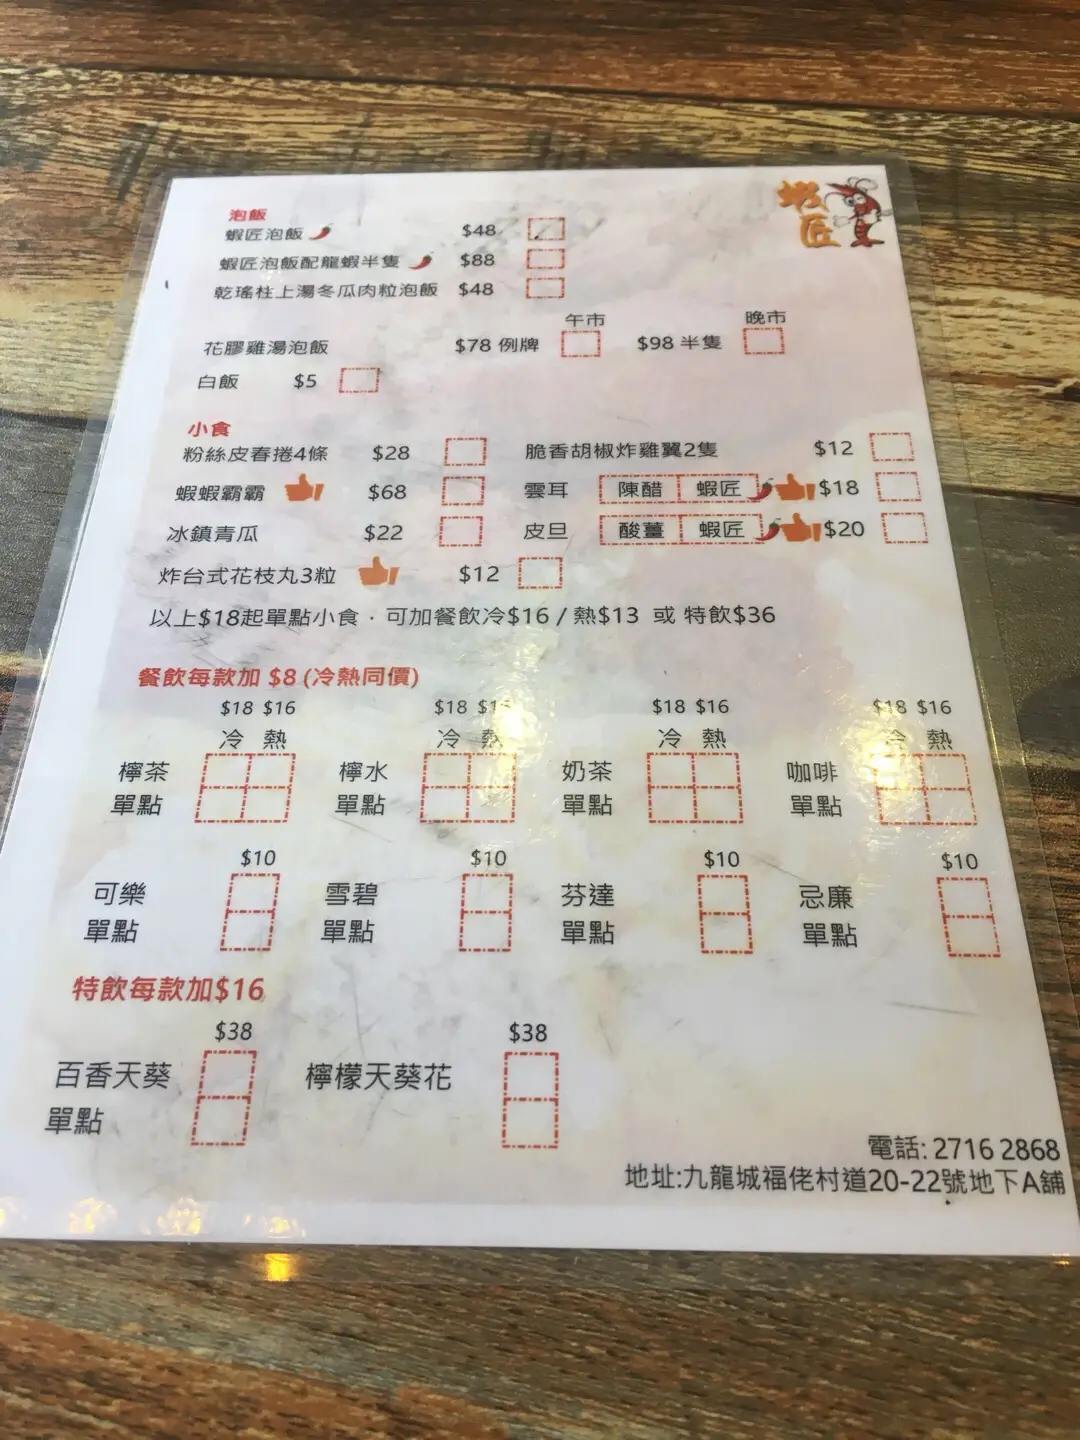 蝦匠
泡飯
蝦匠泡飯 $48
蝦匠泡飯配龍蝦半隻 $88
乾瑤柱上湯冬瓜肉粒泡飯 $48
午市 晚市
花膠雞湯泡飯 $78 例牌 $98 半隻
白飯 $5
小食
粉絲皮春捲4條 $28 脆香胡椒炸雞翼2隻 $12
蝦蝦霸霸 $68 雲耳 陳醋 蝦匠 $18
冰鎮青瓜 $22 皮旦 酸薑 蝦匠 $20
炸台式花枝丸3粒 $12
以上$18起單點小食．可加餐飲冷$16 / 熱$13 或 特飲$36
餐飲每款加 $8 (冷熱同價)
$18 $16 $18 $16 $18 $16 $18 $16
冷 熱 冷 熱 冷 熱 冷 熱
檸茶 檸水 奶茶 咖啡
單點 單點 單點 單點
$10 $10 $10 $10
可樂 雪碧 芬達 忌廉
單點 單點 單點 單點
特飲每款加$16
$38 $38
百香天葵 檸檬天葵花
單點
電話: 2716 2868
地址:九龍城福佬村道20-22號地下A舖